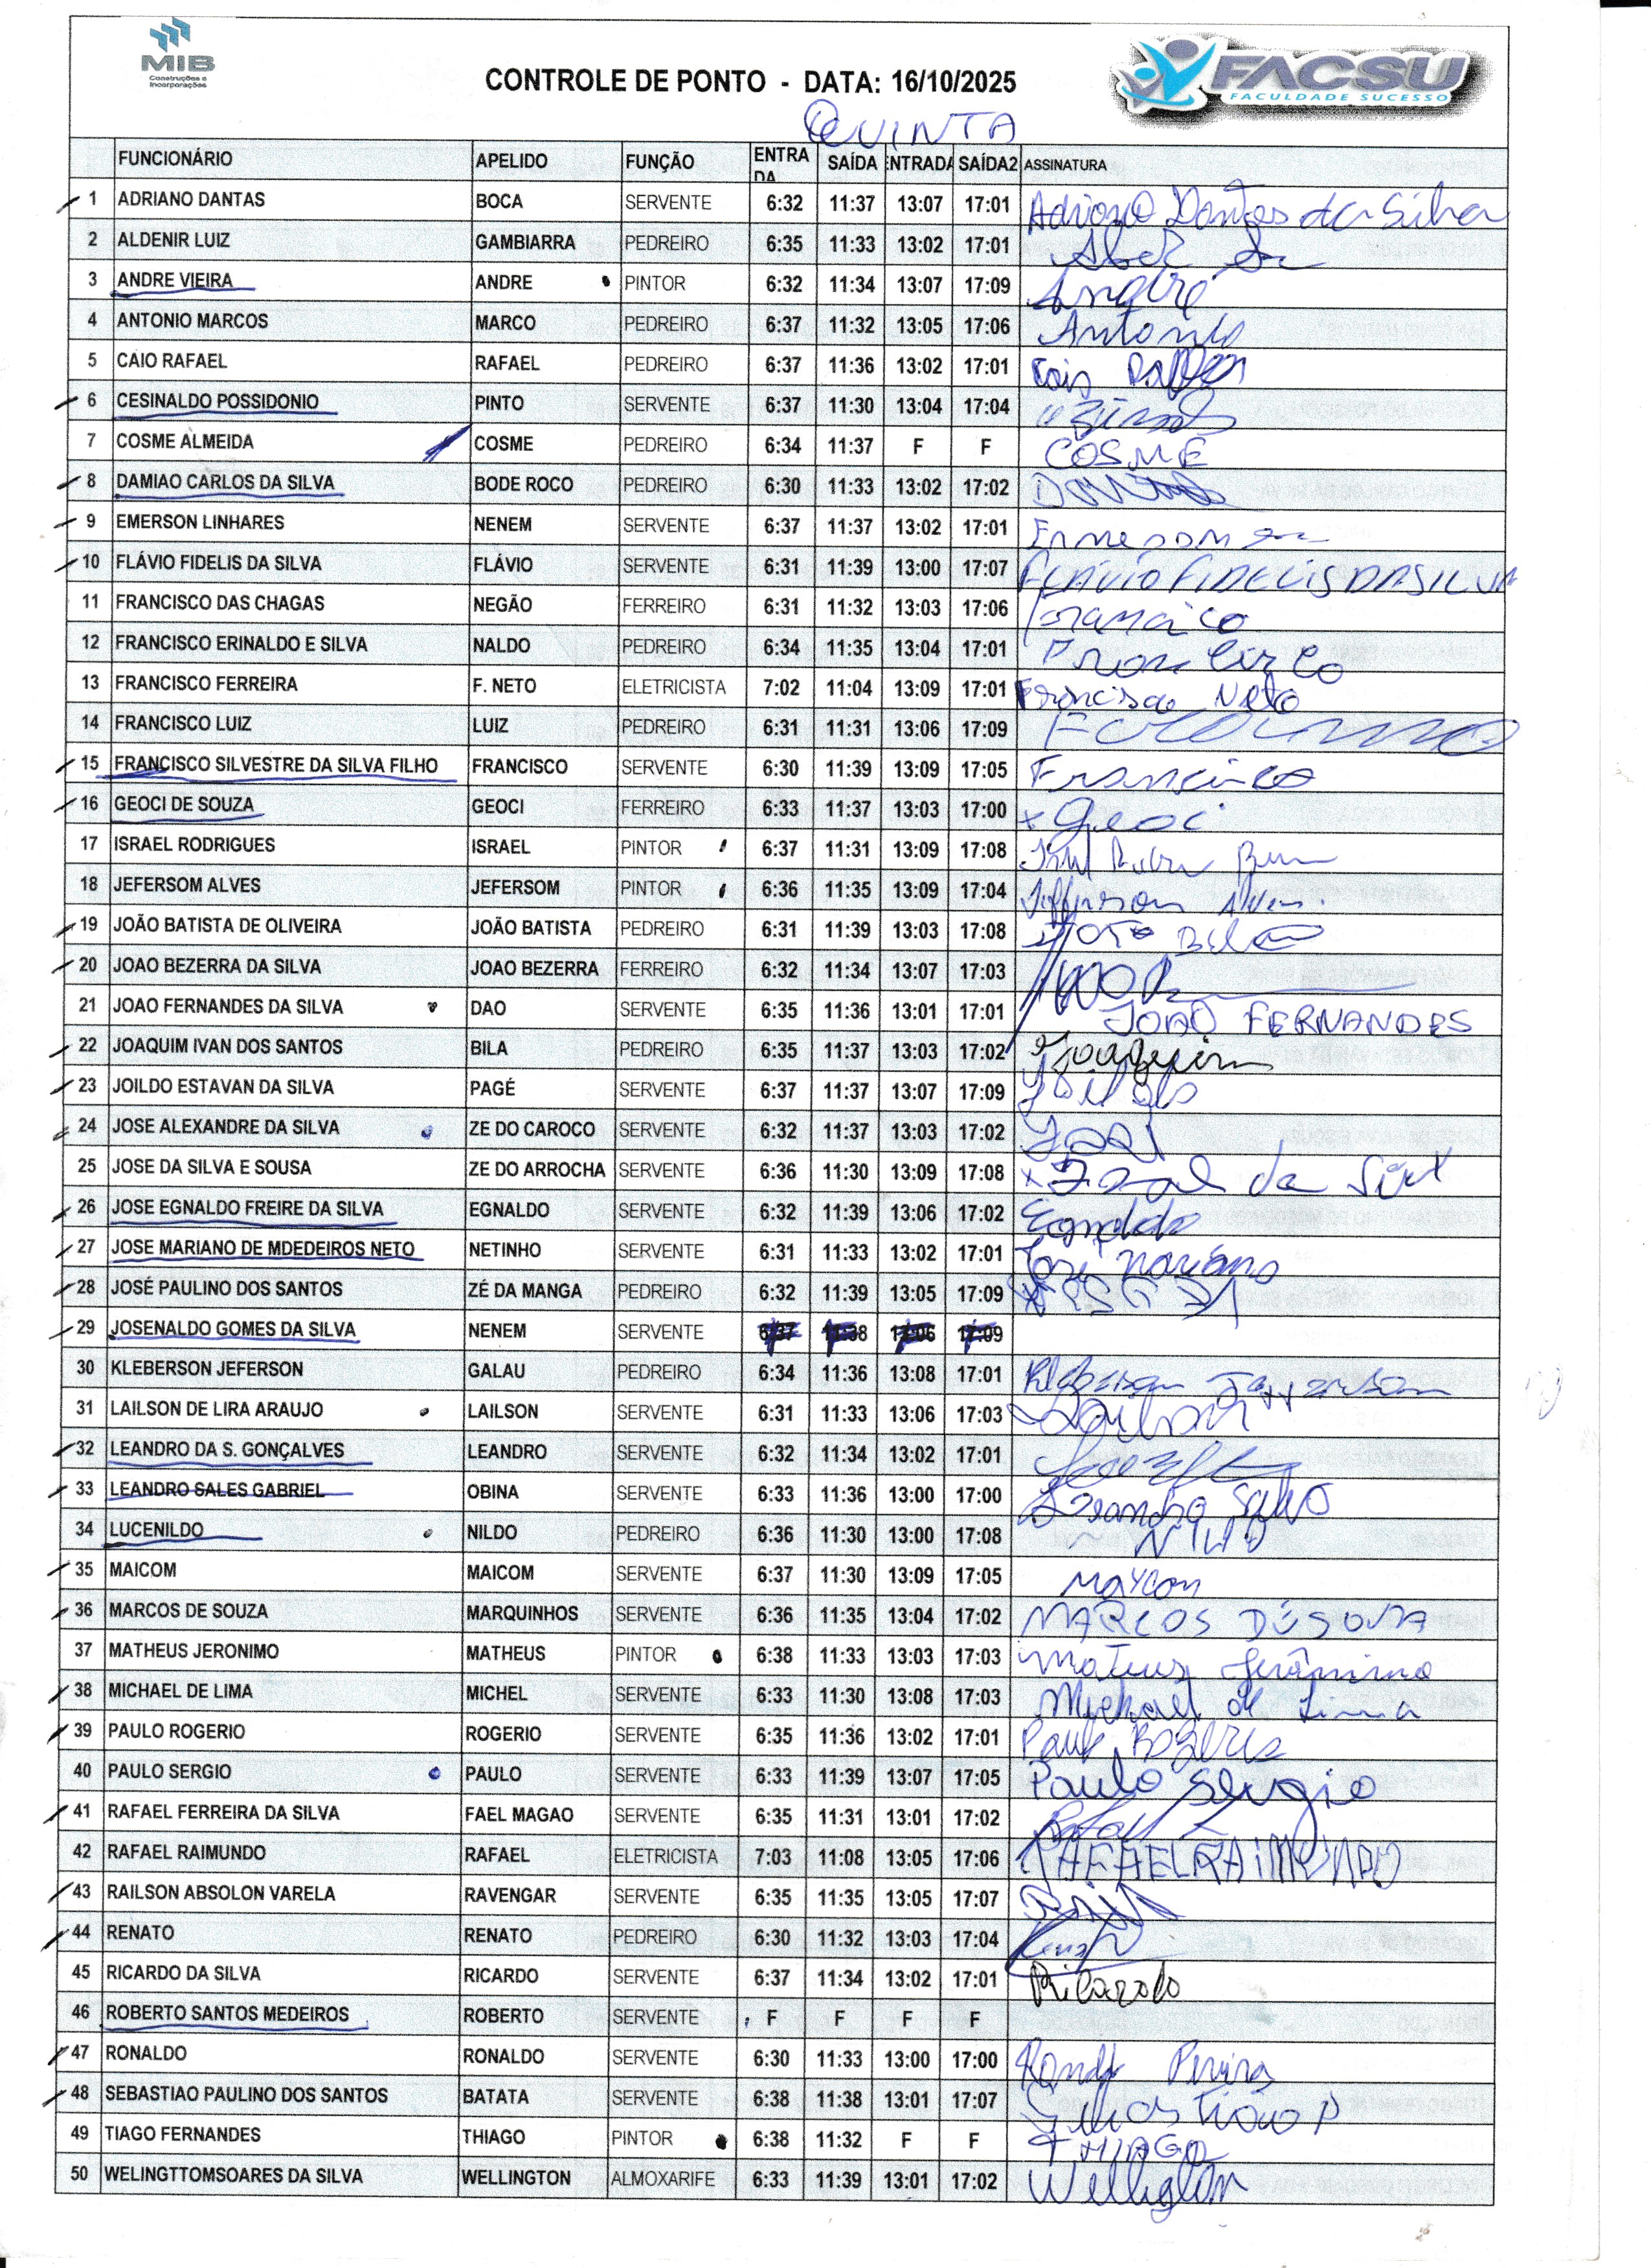 MIB
Construções e
Incorporações
CONTROLE DE PONTO - DATA: 16/10/2025
FACSU
FACULDADE SUCESSO
QUINTA
FUNCIONÁRIO APELIDO FUNÇÃO ENTRADA SAÍDA ENTRADA SAÍDA2 ASSINATURA
1 ADRIANO DANTAS BOCA SERVENTE 6:32 11:37 13:07 17:01 Adriano Dantas da Silva
2 ALDENIR LUIZ GAMBIARRA PEDREIRO 6:35 11:33 13:02 17:01
3 ANDRE VIEIRA ANDRE PINTOR 6:32 11:34 13:07 17:09 André
4 ANTONIO MARCOS MARCO PEDREIRO 6:37 11:32 13:05 17:06 Antonio
5 CAIO RAFAEL RAFAEL PEDREIRO 6:37 11:36 13:02 17:01
6 CESINALDO POSSIDONIO PINTO SERVENTE 6:37 11:30 13:04 17:04
7 COSME ALMEIDA COSME PEDREIRO 6:34 11:37 F F COSME
8 DAMIAO CARLOS DA SILVA BODE ROCO PEDREIRO 6:30 11:33 13:02 17:02
9 EMERSON LINHARES NENEM SERVENTE 6:37 11:37 13:02 17:01
10 FLÁVIO FIDELIS DA SILVA FLÁVIO SERVENTE 6:31 11:39 13:00 17:07 FLÁVIO FIDELIS DA SILVA
11 FRANCISCO DAS CHAGAS NEGÃO FERREIRO 6:31 11:32 13:03 17:06
12 FRANCISCO ERINALDO E SILVA NALDO PEDREIRO 6:34 11:35 13:04 17:01
13 FRANCISCO FERREIRA F. NETO ELETRICISTA 7:02 11:04 13:09 17:01 Francisco Neto
14 FRANCISCO LUIZ LUIZ PEDREIRO 6:31 11:31 13:06 17:09
15 FRANCISCO SILVESTRE DA SILVA FILHO FRANCISCO SERVENTE 6:30 11:39 13:09 17:05 Francisco
16 GEOCI DE SOUZA GEOCI FERREIRO 6:33 11:37 13:03 17:00 x Geoci
17 ISRAEL RODRIGUES ISRAEL PINTOR 6:37 11:31 13:09 17:08
18 JEFERSOM ALVES JEFERSOM PINTOR 6:36 11:35 13:09 17:04 Jefferson Alves.
19 JOÃO BATISTA DE OLIVEIRA JOÃO BATISTA PEDREIRO 6:31 11:39 13:03 17:08
20 JOAO BEZERRA DA SILVA JOAO BEZERRA FERREIRO 6:32 11:34 13:07 17:03
21 JOAO FERNANDES DA SILVA DAO SERVENTE 6:35 11:36 13:01 17:01 JOAO FERNANDES
22 JOAQUIM IVAN DOS SANTOS BILA PEDREIRO 6:35 11:37 13:03 17:02 Joaquim
23 JOILDO ESTAVAN DA SILVA PAGÉ SERVENTE 6:37 11:37 13:07 17:09 Joildo
24 JOSE ALEXANDRE DA SILVA ZE DO CAROCO SERVENTE 6:32 11:37 13:03 17:02
25 JOSE DA SILVA E SOUSA ZE DO ARROCHA SERVENTE 6:36 11:30 13:09 17:08
26 JOSE EGNALDO FREIRE DA SILVA EGNALDO SERVENTE 6:32 11:39 13:06 17:02 Egnaldo
27 JOSE MARIANO DE MDEDEIROS NETO NETINHO SERVENTE 6:31 11:33 13:02 17:01 José Mariano
28 JOSÉ PAULINO DOS SANTOS ZÉ DA MANGA PEDREIRO 6:32 11:39 13:05 17:09
29 JOSENALDO GOMES DA SILVA NENEM SERVENTE 6:37 11:38 13:06 17:09
30 KLEBERSON JEFERSON GALAU PEDREIRO 6:34 11:36 13:08 17:01
31 LAILSON DE LIRA ARAUJO LAILSON SERVENTE 6:31 11:33 13:06 17:03 Lailson
32 LEANDRO DA S. GONÇALVES LEANDRO SERVENTE 6:32 11:34 13:02 17:01
33 LEANDRO SALES GABRIEL OBINA SERVENTE 6:33 11:36 13:00 17:00 Leandro Sales
34 LUCENILDO NILDO PEDREIRO 6:36 11:30 13:00 17:08 NILDO
35 MAICOM MAICOM SERVENTE 6:37 11:30 13:09 17:05 Maycon
36 MARCOS DE SOUZA MARQUINHOS SERVENTE 6:36 11:35 13:04 17:02 MARCOS DÉ SOUZA
37 MATHEUS JERONIMO MATHEUS PINTOR 6:38 11:33 13:03 17:03 Mateus Jerônimo
38 MICHAEL DE LIMA MICHEL SERVENTE 6:33 11:30 13:08 17:03 Michael de Lima
39 PAULO ROGERIO ROGERIO SERVENTE 6:35 11:36 13:02 17:01 Paulo Rogerio
40 PAULO SERGIO PAULO SERVENTE 6:33 11:39 13:07 17:05 Paulo Sergio
41 RAFAEL FERREIRA DA SILVA FAEL MAGAO SERVENTE 6:35 11:31 13:01 17:02 Rafael
42 RAFAEL RAIMUNDO RAFAEL ELETRICISTA 7:03 11:08 13:05 17:06 RAFAEL RAIMUNDO
43 RAILSON ABSOLON VARELA RAVENGAR SERVENTE 6:35 11:35 13:05 17:07
44 RENATO RENATO PEDREIRO 6:30 11:32 13:03 17:04
45 RICARDO DA SILVA RICARDO SERVENTE 6:37 11:34 13:02 17:01 Ricardo
46 ROBERTO SANTOS MEDEIROS ROBERTO SERVENTE F F F F
47 RONALDO RONALDO SERVENTE 6:30 11:33 13:00 17:00
48 SEBASTIAO PAULINO DOS SANTOS BATATA SERVENTE 6:38 11:38 13:01 17:07
49 TIAGO FERNANDES THIAGO PINTOR 6:38 11:32 F F THIAGO
50 WELINGTTOMSOARES DA SILVA WELLINGTON ALMOXARIFE 6:33 11:39 13:01 17:02